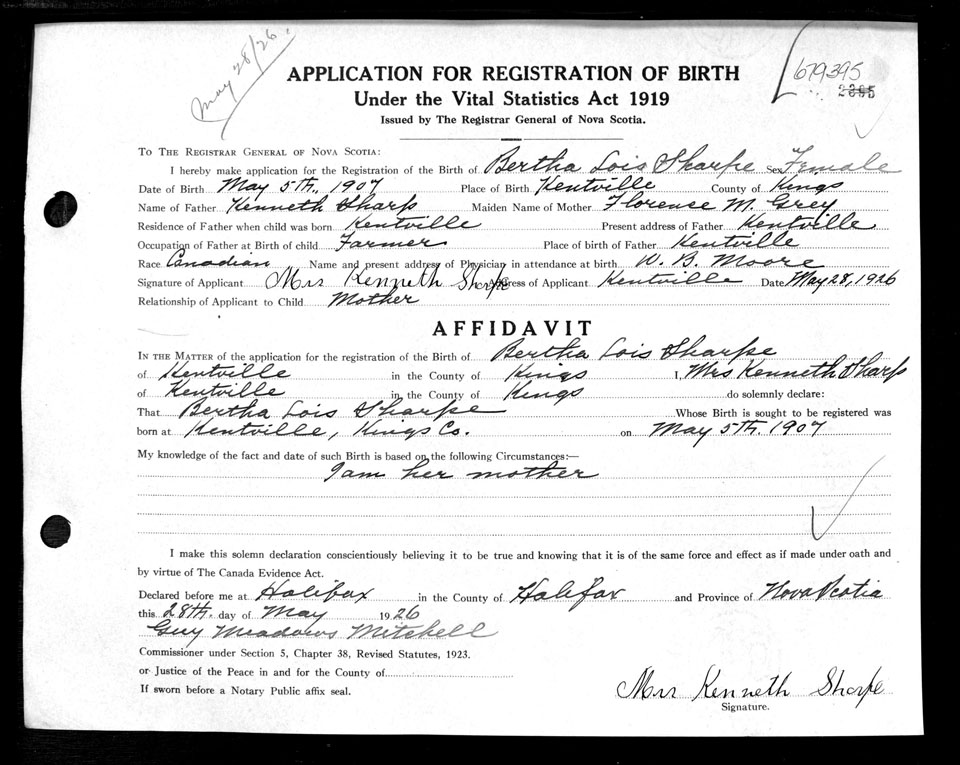 May 28/26.
679395
2395
APPLICATION FOR REGISTRATION OF BIRTH
Under the Vital Statistics Act 1919
Issued by The Registrar General of Nova Scotia.
TO THE REGISTRAR GENERAL OF NOVA SCOTIA:
I hereby make application for the Registration of the Birth of Bertha Lois Sharpe Sex Female
Date of Birth May 5th, 1907 Place of Birth Kentville County of Kings
Name of Father Kenneth Sharp Maiden Name of Mother Florence M. Grey
Residence of Father when child was born Kentville Present address of Father Kentville
Occupation of Father at Birth of child Farmer Place of birth of Father Kentville
Race Canadian Name and present address of Physician in attendance at birth W. B. Moore
Signature of Applicant Mrs Kenneth Sharpe Address of Applicant Kentville Date May 28, 1926
Relationship of Applicant to Child Mother
AFFIDAVIT
IN THE MATTER of the application for the registration of the Birth of Bertha Lois Sharpe
of Kentville in the County of Kings I, Mrs Kenneth Sharp
of Kentville in the County of Kings do solemnly declare:
That Bertha Lois Sharpe Whose Birth is sought to be registered was
born at Kentville, Kings Co. on May 5th. 1907
My knowledge of the fact and date of such Birth is based on the following Circumstances:—
I am her mother
I make this solemn declaration conscientiously believing it to be true and knowing that it is of the same force and effect as if made under oath and
by virtue of The Canada Evidence Act.
Declared before me at Halifax in the County of Halifax and Province of Nova Scotia
this 28th. day of May 1926
Guy Meadows Mitchell
Commissioner under Section 5, Chapter 38, Revised Statutes, 1923.
or Justice of the Peace in and for the County of
If sworn before a Notary Public affix seal.
Mrs Kenneth Sharpe
Signature.